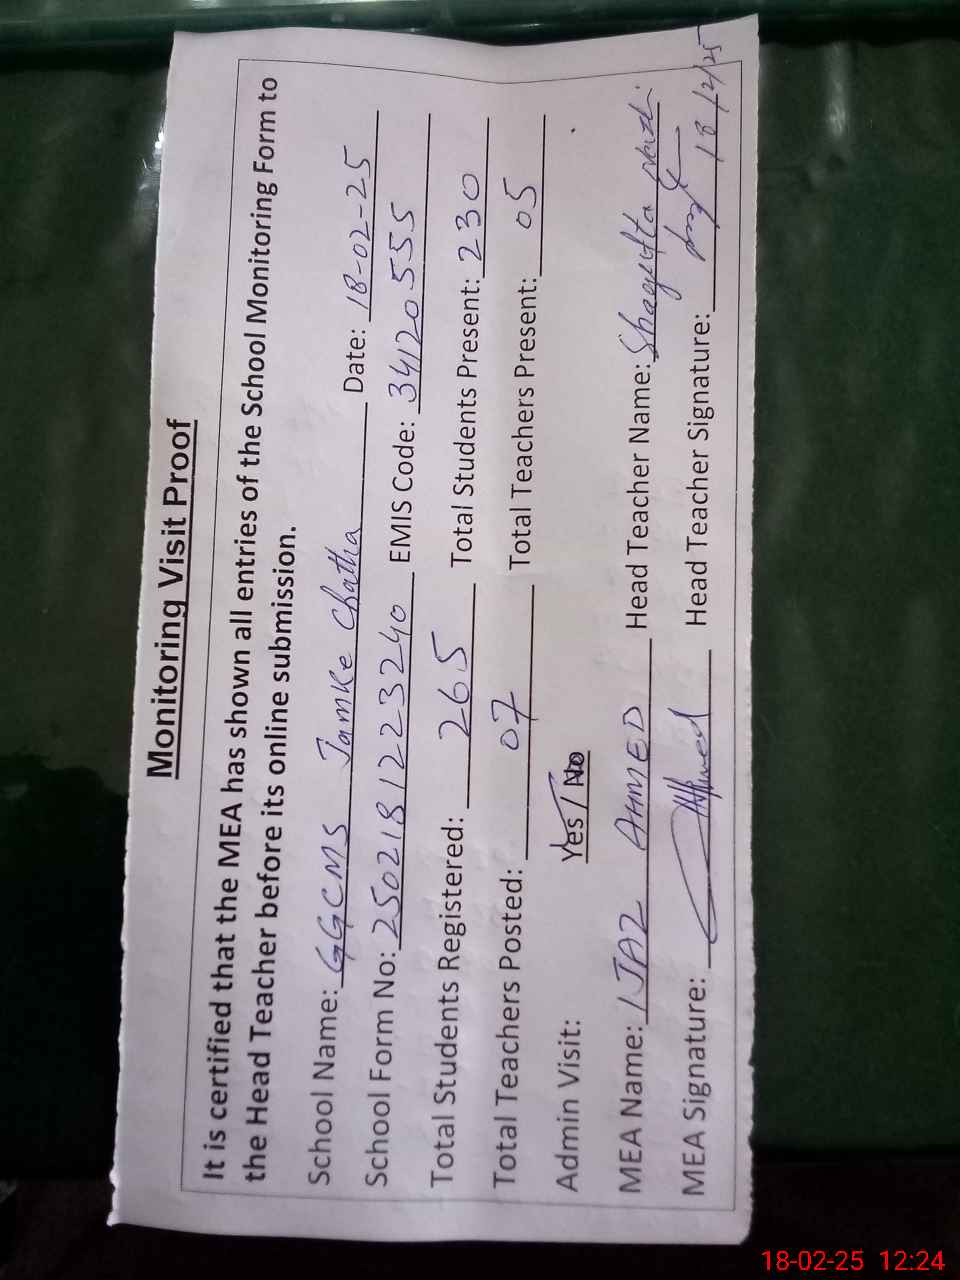 Monitoring Visit Proof
It is certified that the MEA has shown all entries of the School Monitoring Form to
the Head Teacher before its online submission.
School Name: GGCMS Jamke Chatha Date: 18-02-25
School Form No: 2502181223240 EMIS Code: 34120555
Total Students Registered: 265 Total Students Present: 230
Total Teachers Posted: 07 Total Teachers Present: 05
Admin Visit: Yes / No
MEA Name: IJAZ AHMED Head Teacher Name: Shagufta
MEA Signature: Ahmed Head Teacher Signature: 18/2/25
18-02-25 12:24